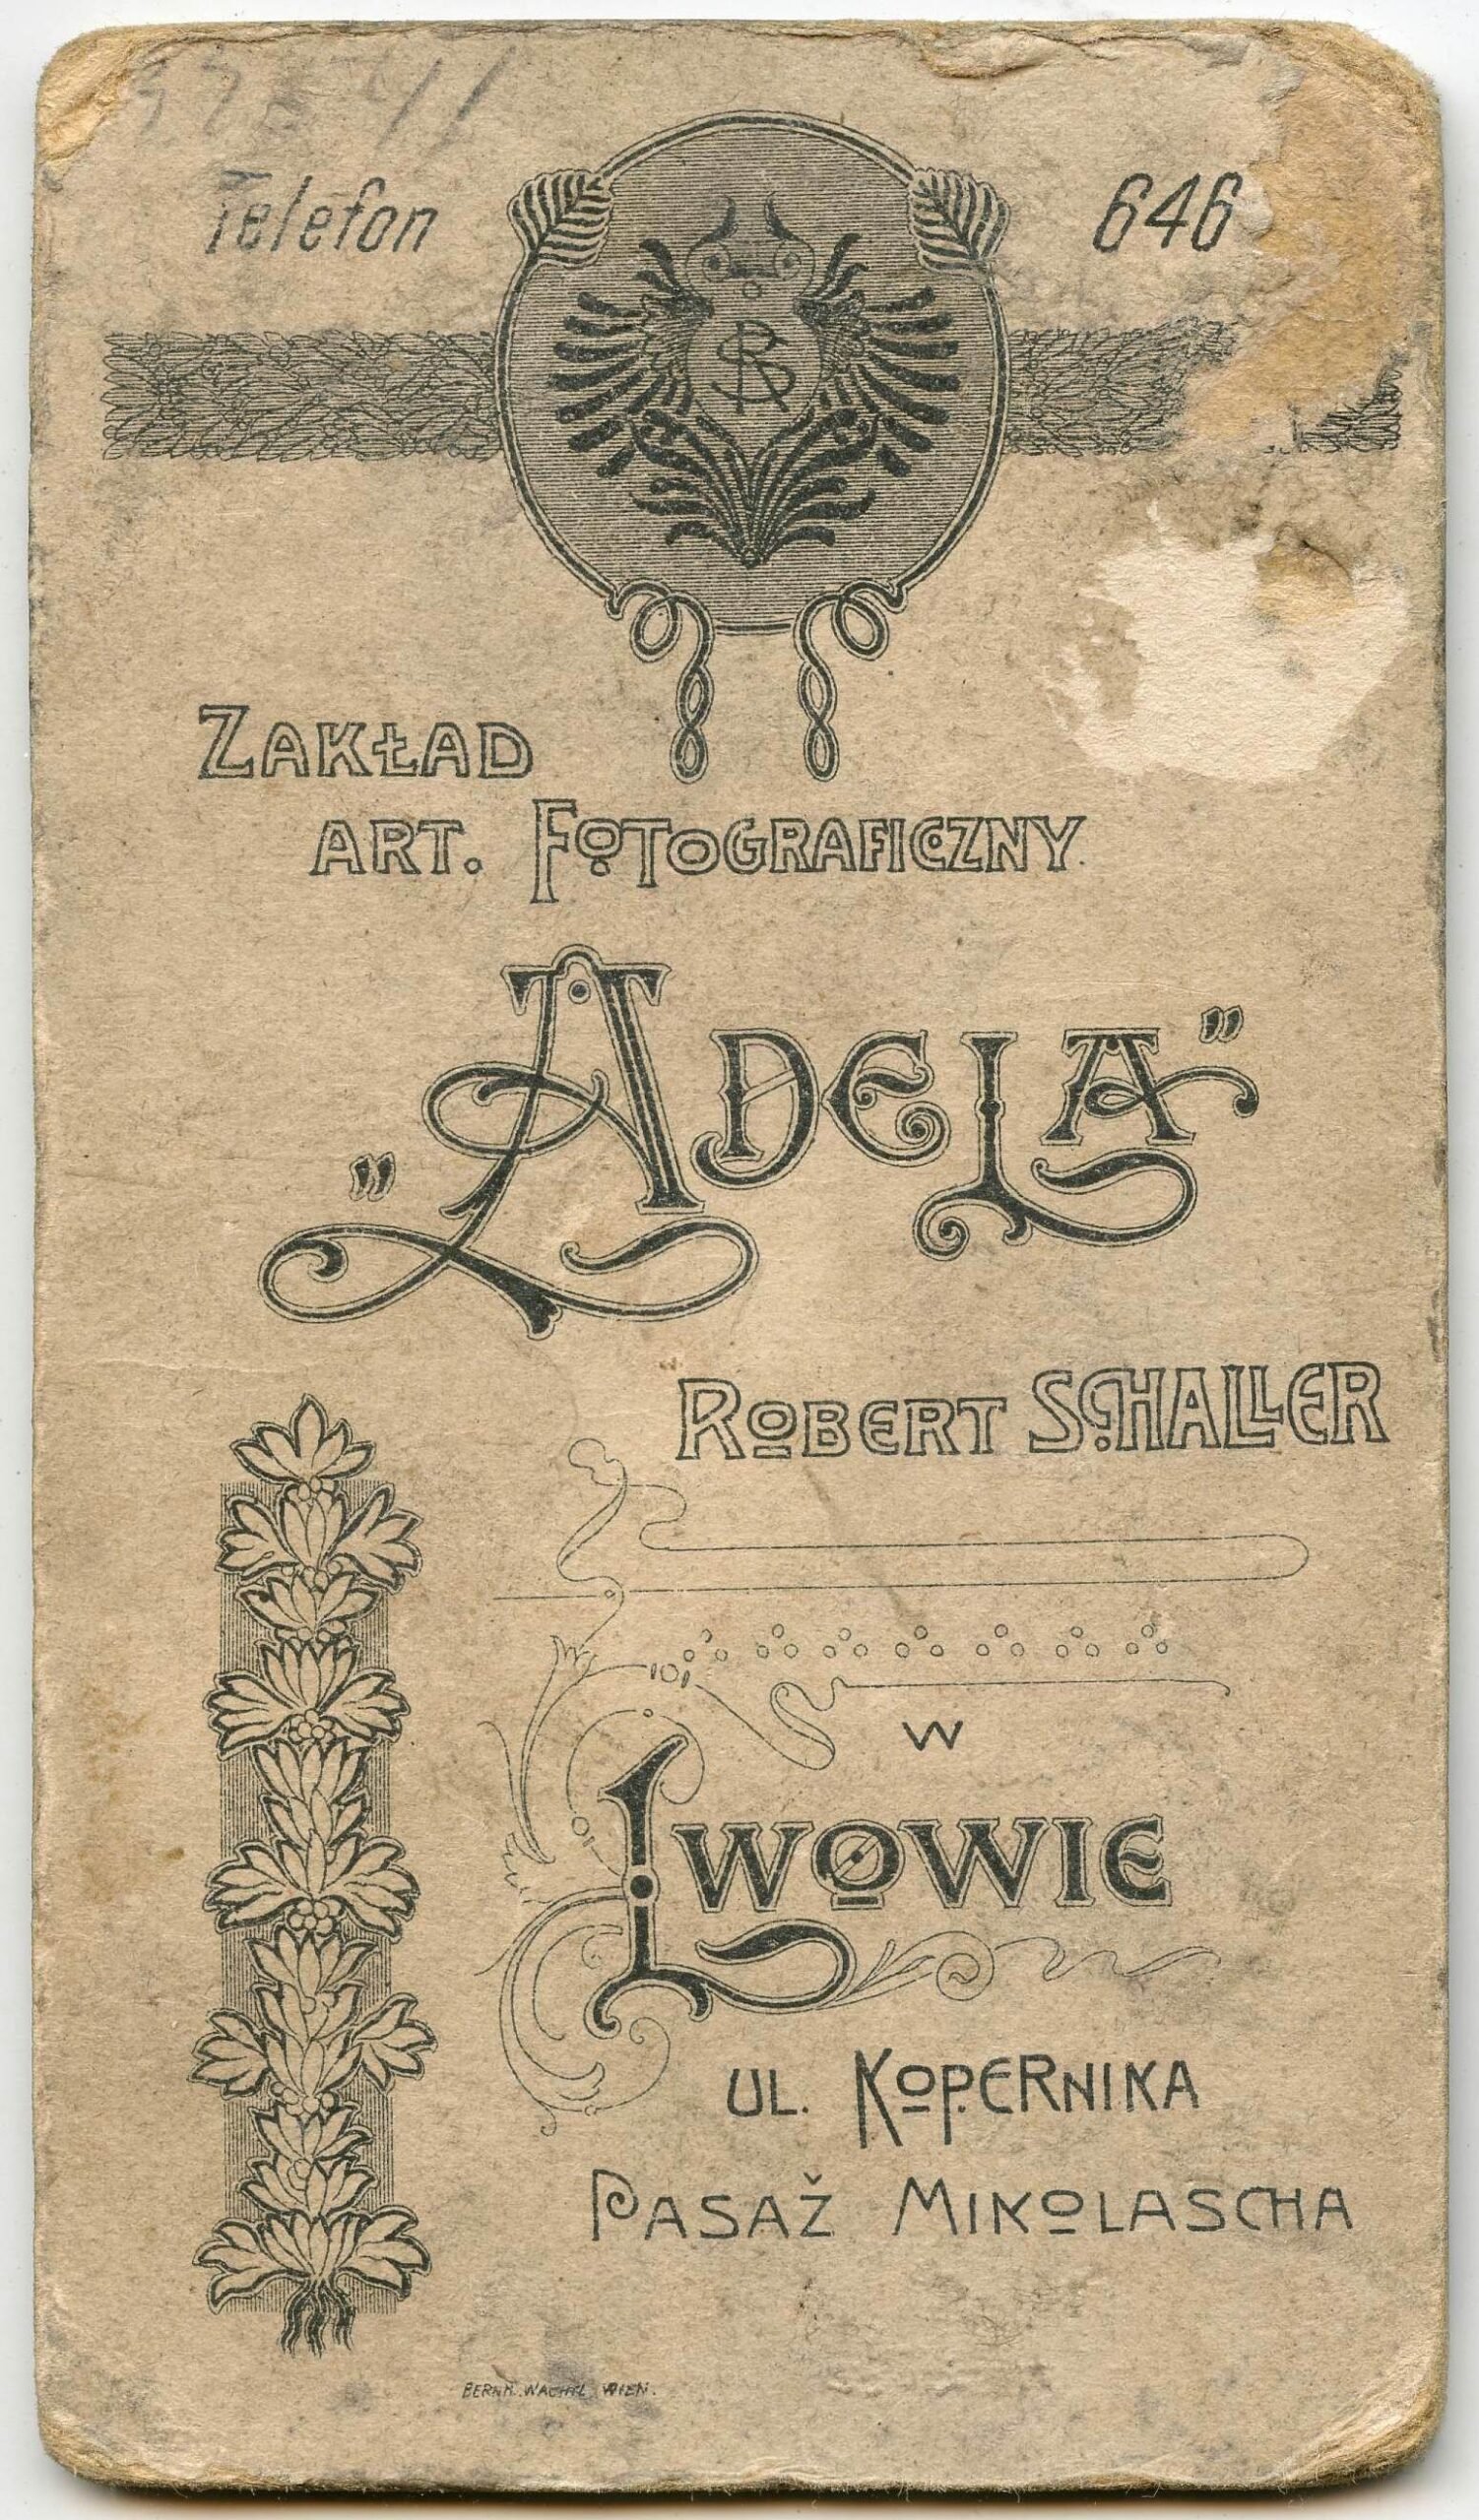 Telefon 646
RS
ZAKŁAD
ART. FOTOGRAFICZNY.
„ADELA”
ROBERT SCHALLER
W
LWOWIE
UL. KOPERNIKA
PASAŽ MIKOLASCHA
BERNH. WACHTL WIEN.